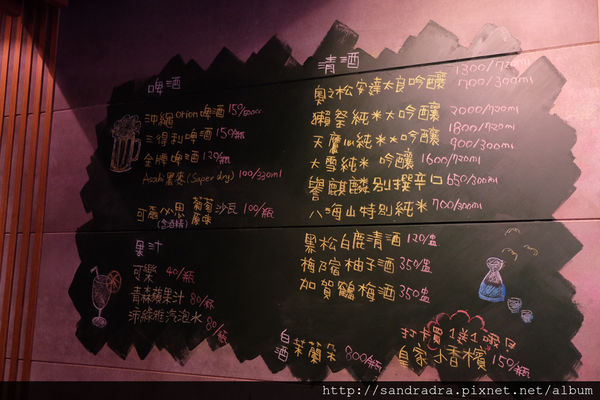 啤酒
沖繩orion啤酒 150/500cc
三得利啤酒 150/瓶
金牌啤酒 120/瓶
Asahi 黑麥(Super dry) 100/330ml
可爾必思 葡萄 原味 沙瓦 100/瓶
(含酒精)
果汁
可樂 40/瓶
青森蘋果汁 80/瓶
沛綠雅汽泡水 80/瓶
清酒
1300/720ml
奧之松安達太良吟釀 700/300ml
獺祭純米大吟釀 2000/720ml
1800/720ml
天鷹心純米大吟釀 900/300ml
大雪純米 吟釀 1600/720ml
譽麒麟特別撰辛口 650/300ml
八海山特別純米 700/300ml
黑松白鹿清酒 120/盅
梅乃宿柚子酒 350/盅
加賀鶴梅酒 350/盅
白酒 茉蘭朵 800/瓶
打卡買1送1哦!
皇家小香檳 150/瓶
http://sandradra.pixnet.net/album